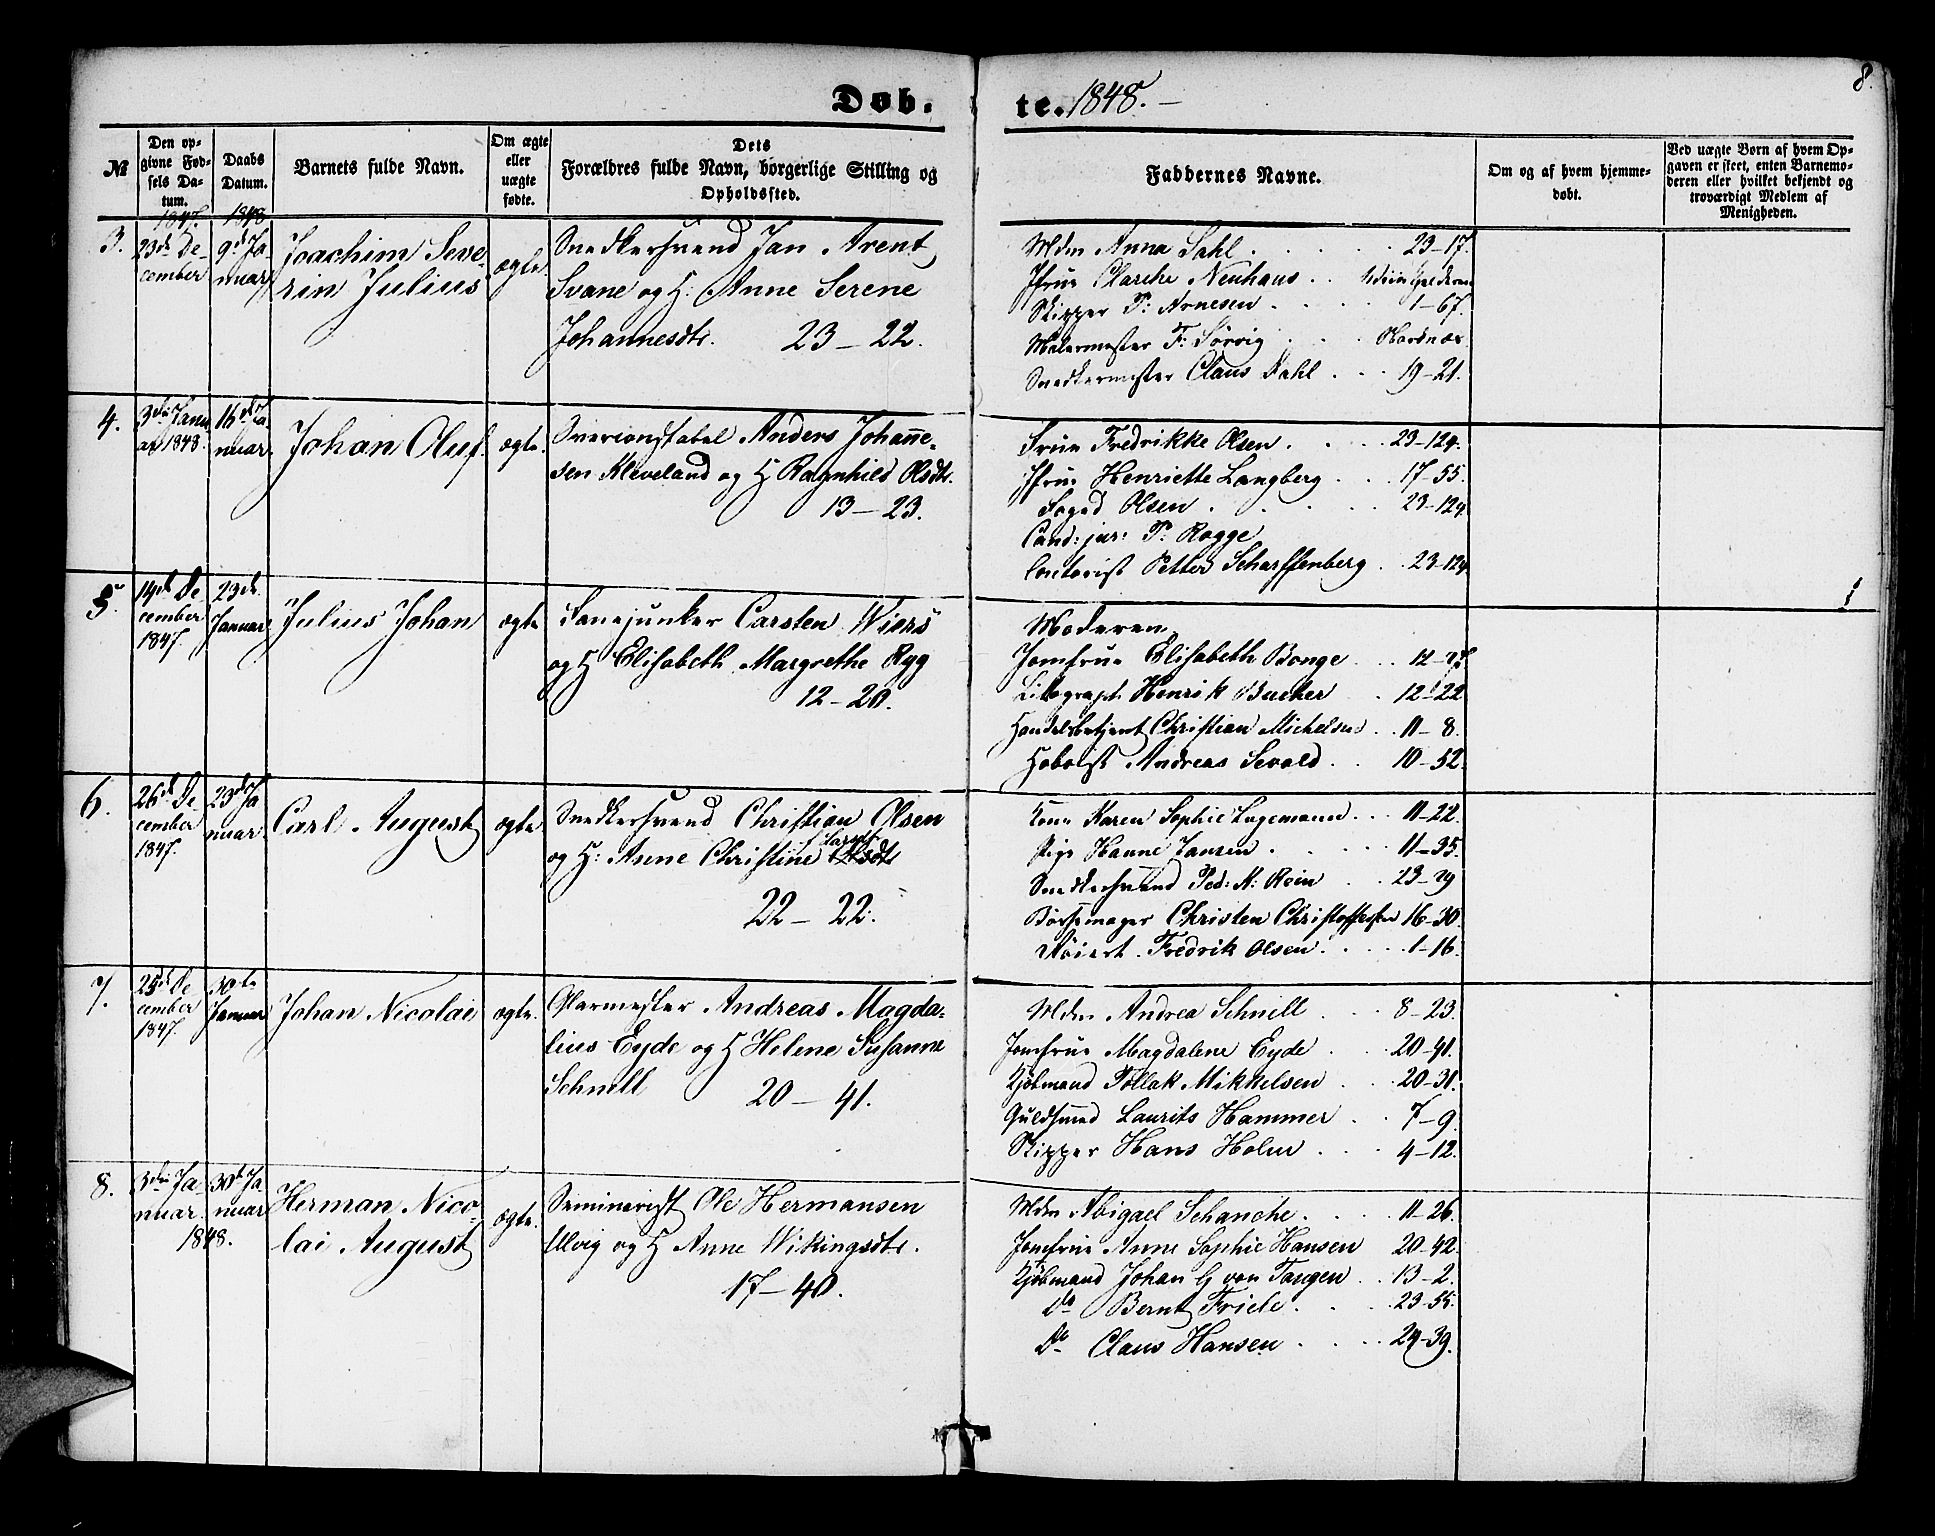 8.
Døb. te. 1848. –
№
Den opgivne Fødsels Datum.
Daabs Datum.
Barnets fulde Navn.
Om ægte eller uægte fødte.
Dets Forældres fulde Navn, borgerlige Stilling og Opholdssted.
Faddernes Navne.
Om og af hvem hjemmedøbt.
Ved uægte Børn af hvem Opgaven er skeet, enten Barnemoderen eller hvilket bekjendt og troværdigt Medlem af Menigheden.
1847. 1848
3. 23de De- 9de Ja- Joachim Seve- ægte. Snedkersvend Jan Arent
cember nuar rin Julius Svane og H: Anne Serene
Johannesdtr. 23 – 22.
Mdm Anna Dahl . . . . 23–17.
Jfrue Claseke Neuhaus . .
Skipper P: Arnesen . . . 1–67.
Malermester F: Sørvig . . . Nordnæs.
Snedkermester Claus Dahl . . . 19–21.
4. 3die Janu- 16de Ja- Johan Oluf. ægte. Anders Johanne-
ar 1848. nuar. sen Kleveland og H Ragnhild Olsdtr.
13 – 23.
Frue Fredrikke Olsen . . . 23–124.
Jfrue Henriette Langberg . . . 17–55.
Foged Olsen . . . . 23–124
Cand: jur: P. Rogge
Contorist Petter Scharffenberg . . 23–124
5. 14de De- 23de Julius Johan ægte Fanejunker Carsten Wiers
cember Januar og H Elisabeth Margrethe Ryg
1847. 12–20.
Moderen
Jomfrue Elisabeth Bonge . . .
Lithograph Henrik Bucher . 12–22
Handelsbetjent Christian Michelsen . . 11–8.
Hoboist Andreas Sevald . . 10–52.
6. 26de De- 23de Ja- Carl August ægte Snedkersvend Christian Olsen
cember nuar og H: Anne Christine
1847. 22 – 22.
Kone Karen Sophie Lagemann . . . 11–22.
Pige Hanne Jansen . . . . 11–35.
Snedkersvend Ped: A: Rein . . 23–29
Børsemager Christen Christoffersen 16–30.
Fredrik Olsen . . . . 1–16.
7. 25de De- 30te Johan Nicolai ægte. Glarmester Andreas Magda-
cember Januar lius Eyde og H Helene Susanne
1847. Schnell 20 – 41.
Mdm Andrea Schnell . . . 8–23.
Jomfrue Magdalene Eyde . . . 20–41.
Kjøbmand Tollak Mikkelsen . . . 20–31.
Guldsmed Laurits Hammer . . 7–9.
Skipper Hans Holm . . . 4–12.
8. 3die Ja- 30te Ja- Herman Nico- ægte. Seminarist Ole Hermansen
nuar nuar lai August Ulvig og H Anne Wikingsdtr.
1848. 17–40.
Mdm Abigael Schanche . . . . 11–26.
Jomfrue Anne Sophie Hansen 20–42.
Kjøbmand Johan G von Tangen . . 13–2.
Do Bernt Friele . . . 23–55.
Do Claus Hansen . . . . 24–39.